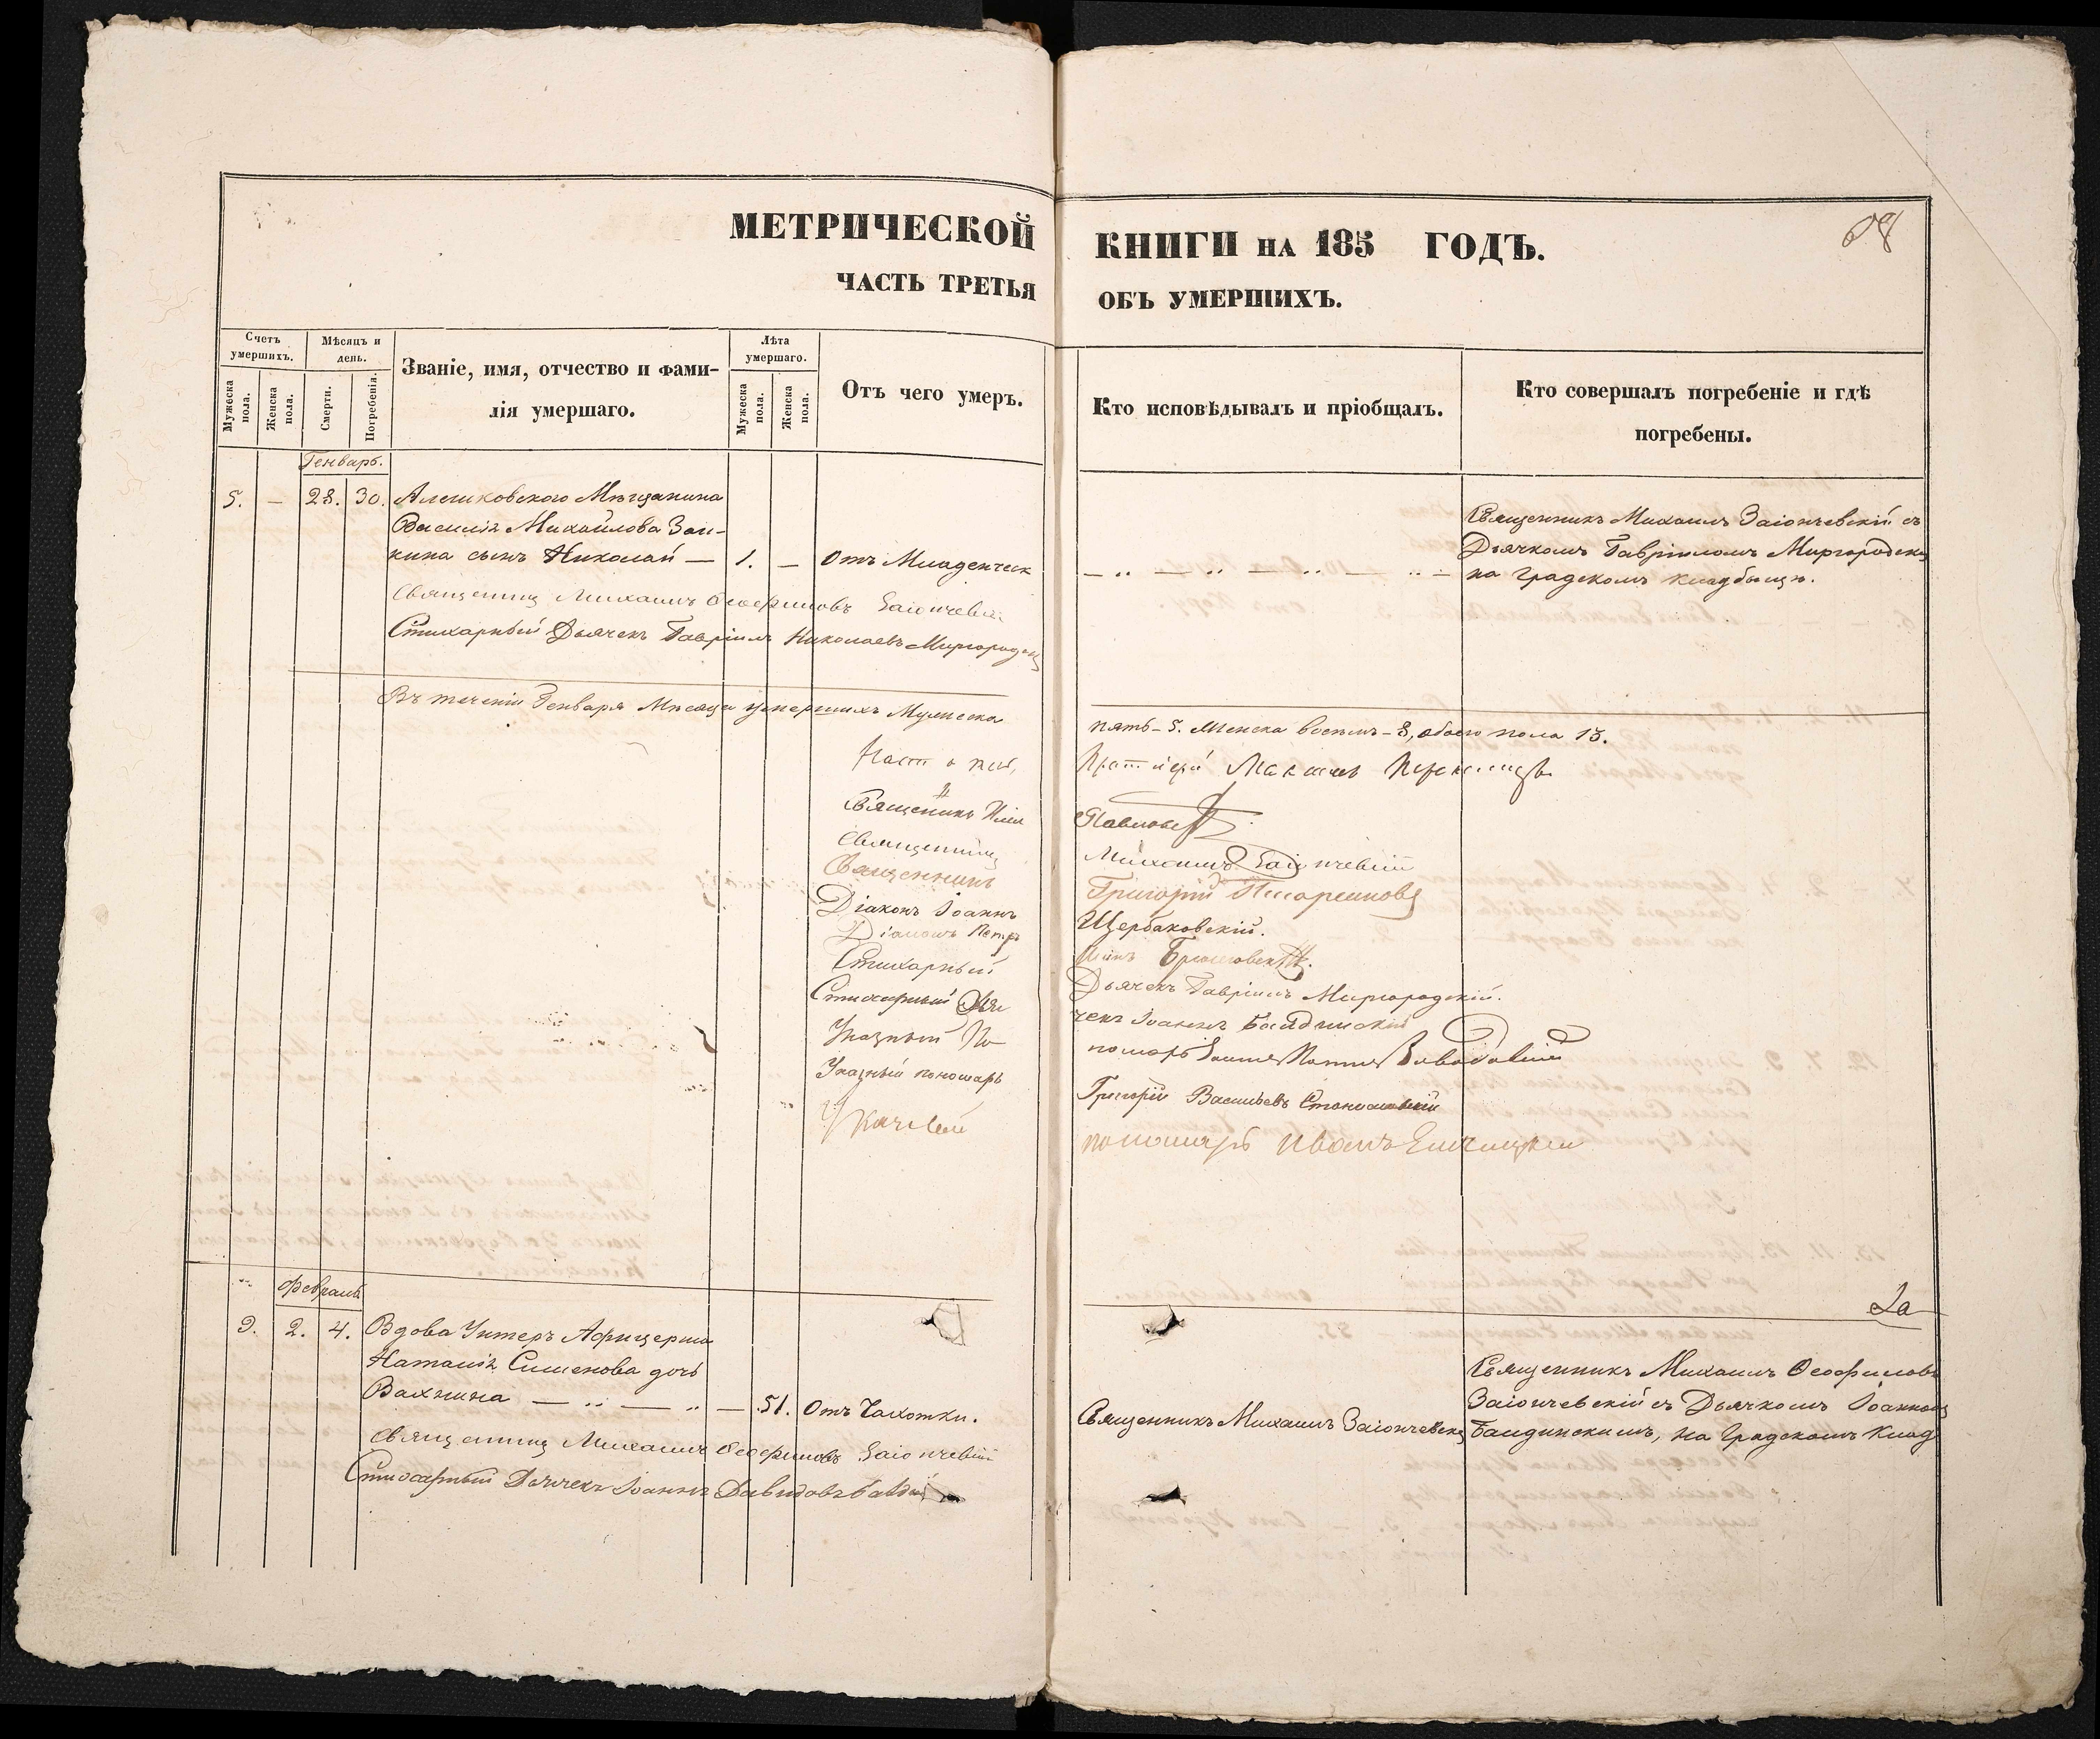 МЕТРИЧЕСКОЙ
ЧАСТЬ ТРЕТЬЯ
Счетъ умершихъ.
Мужеска пола.
Женска пола.
Мѣсяцъ и день.
Смерти.
Погребенія.
Званіе, имя, отчество и фами-
лія умершаго.
Лѣта умершаго.
Мужеска пола.
Женска пола.
Отъ чего умеръ.
Генварь.
5. — 28. 30. Алешковского Мѣщанина
Василія Михайлова Заи-
кина сынъ Николай — 1. — Отъ Младенческ
Священникъ Михаилъ Ѳеофиловъ Заіончевскій
Стихарный Дьячекъ Гавріилъ Николаевъ Миргородскій
Въ теченіи Генваря Мѣсяца умершихъ Мужеска
Священникъ
Священникъ
Священникъ
Діаконъ Іоаннъ
Діаконъ Петръ
Стихарный
Стихарный Дья
Указный По
Указный пономарь
Указный
Февраль
9. 2. 4. Вдова Унтеръ Афицерша
Наталія Сименова дочь
Вахнина — „ — „ — 51. Отъ Чахотки.
Священникъ Михаилъ Ѳеофиловъ Заіончевскій
Стихарный Дьячекъ Іоаннъ Давидовъ
КНИГИ НА 185 ГОДЪ.
ОБЪ УМЕРШИХЪ.
Кто исповѣдывалъ и пріобщалъ.
Кто совершалъ погребеніе и гдѣ
погребены.
Священникъ Михаилъ Заіончевскій съ
Дьячкомъ Гавріиломъ Миргородски
— „ — „ — „ — „ — на Градскомъ кладбищѣ.
пять - 5. Женска восемь - 8, обоего пола 13.
Павловъ
Михаилъ Заіончевскій
Григорій
Щербаковскій.
Дьячекъ Гавріилъ Миргородскій.
чекъ Іоаннъ
пономарь
Григорій Васильевъ
пономарь Иванъ
2а
Священникъ Михаилъ Ѳеофиловъ
Заіончевскій съ Дьячкомъ Іоанномъ
Священникъ Михаилъ Заіончевскій
Баидинскимъ, на Градскомъ Клад